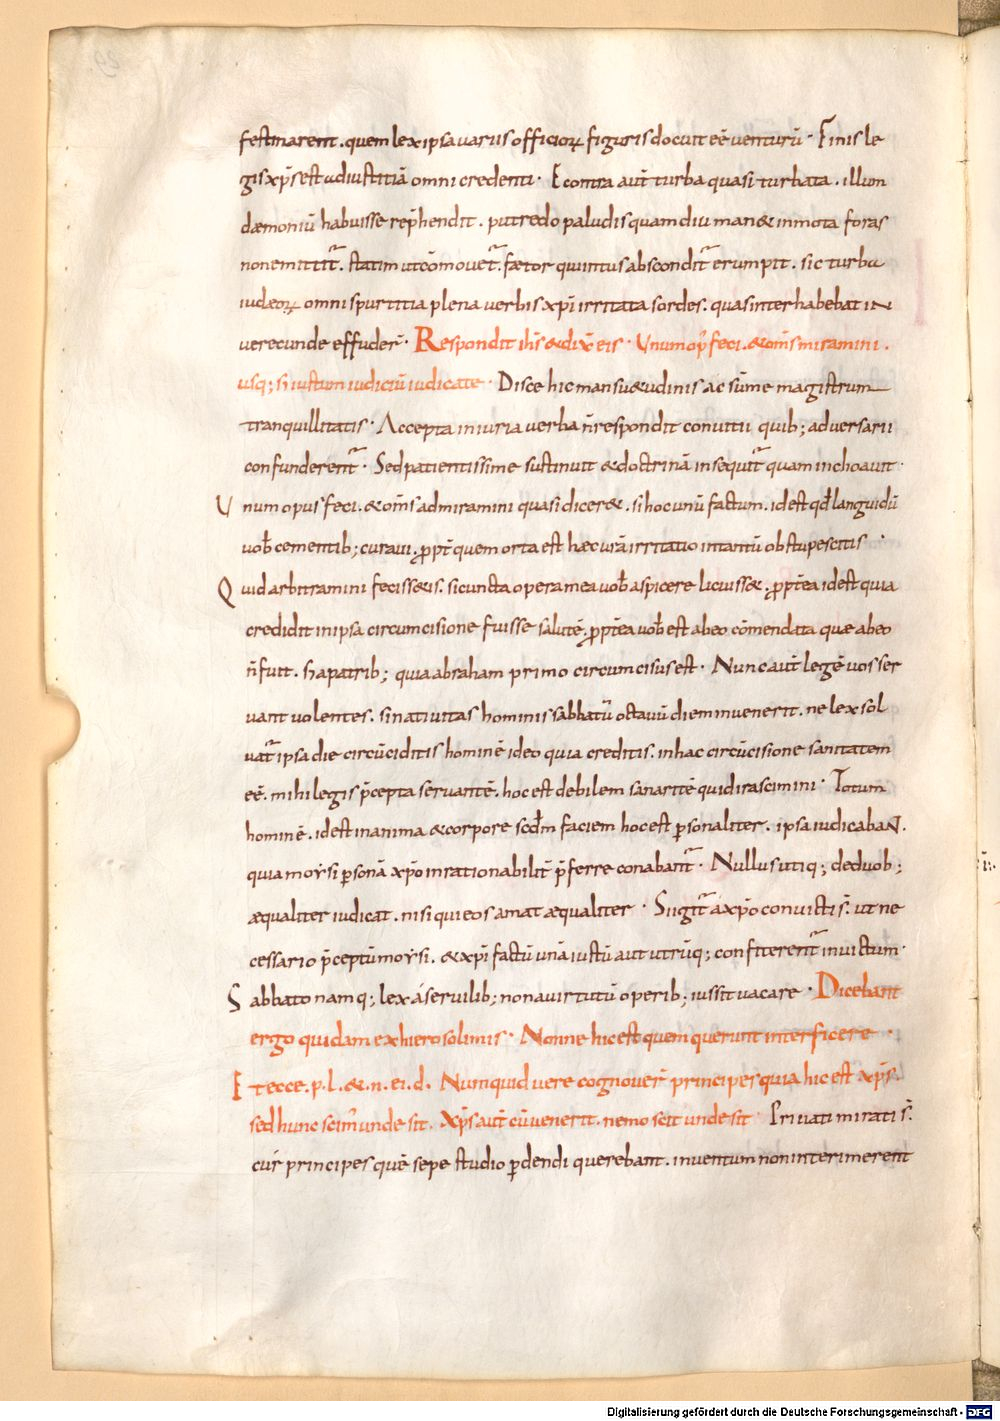 festinarent. quem lex ipsa variis officioꝝ figuris docuit eē venturū· Finis le
gis xp̄s est ad iustitiā omni credenti· Econtra aut̄ turba quasi turbata. illum
dæmoniū habuisse rep̄hendit. putredo paludis quamdiu man& inmota foras
non emittit̄. statim ut cōmovet̄. fætor qui intus abscondit̄ erumpit. sic turba
iudæoꝝ omni spurtitia plena verbis xp̄i irritata sordes. quas inter habebat in
verecunde effuder̄· Respondit ih̄s & dix̄ eis· Unum op̄ feci. & om̄s miramini.
usq; si iustum iudiciū iudicate· Disce hic mansu&udinis ac sūme magistrum
tranquillitatis· Accepta iniuria verba n̄ respondit convitii quib; adversarii
confunderent̄· Sed patientissime sustinuit & doctrinā insequit̄ quam inchoavit·
Unum opus feci. & om̄s admiramini quasi dicer&. si hoc unū factum. id est qd̄ languidū
vob̄ cernentib; curavi. ꝓpt̄ quem orta est hæc vr̄a irritatio in tantū obstupescitis·
Quid arbitramini feciss&is. si cuncta opera mea vob̄ aspicere licuiss&. ꝓpt̄ea id est quia
credidit in ipsa circumcisione fuisse salutē. ꝓpt̄ea vob̄ est ab eo cōmendata quæ ab eo
n̄ fuit. s; a patrib; quia abraham primo circumcisus est· Nunc aut̄ legē vos ser
vare volentes. si nativitas hominis sabbatū octavū diem invenerit. ne lex sol
vat̄ ipsa die circūciditis hominē ideo quia creditis. in hac circūcisione sanitatem
eē. mihi legis p̄cepta servantē. hoc est debilem sanantē quid irascimini· Totum
hominē. id est in anima & corpore scd̄m faciem hoc est ꝑsonaliter. ipsa iudicabant.
quia moysi ꝑsonā xp̄o inrationabilit̄ p̄ferre conabant̄· Nullus utiq; de duob;
æqualiter iudicat. nisi qui eos amat æqualiter· Surgit̄ a xp̄o convicti s̄. ut ne
cessario p̄ceptū moysi. & xp̄i factū unā iustū aut utrūq; confiterent̄ invictum·
Sabbato namq; lex á servilib; non a virtutū operib; iussit vacare· Dicebant
ergo quidam ex hierosolimis· Nonne hic est quem querunt interficere·
Et ecce. p. l. &. n. ei. d. Numquid vere cognover̄ principes quia hic est xp̄s.
sed hunc scim̄ unde sit. Xp̄s aut̄ cū venerit. nemo scit unde sit· Privati mirati s̄.
cur principes quē sepe studio ꝑdendi querebant. inventum non interimerent
Digitalisierung gefördert durch die Deutsche Forschungsgemeinschaft - DFG